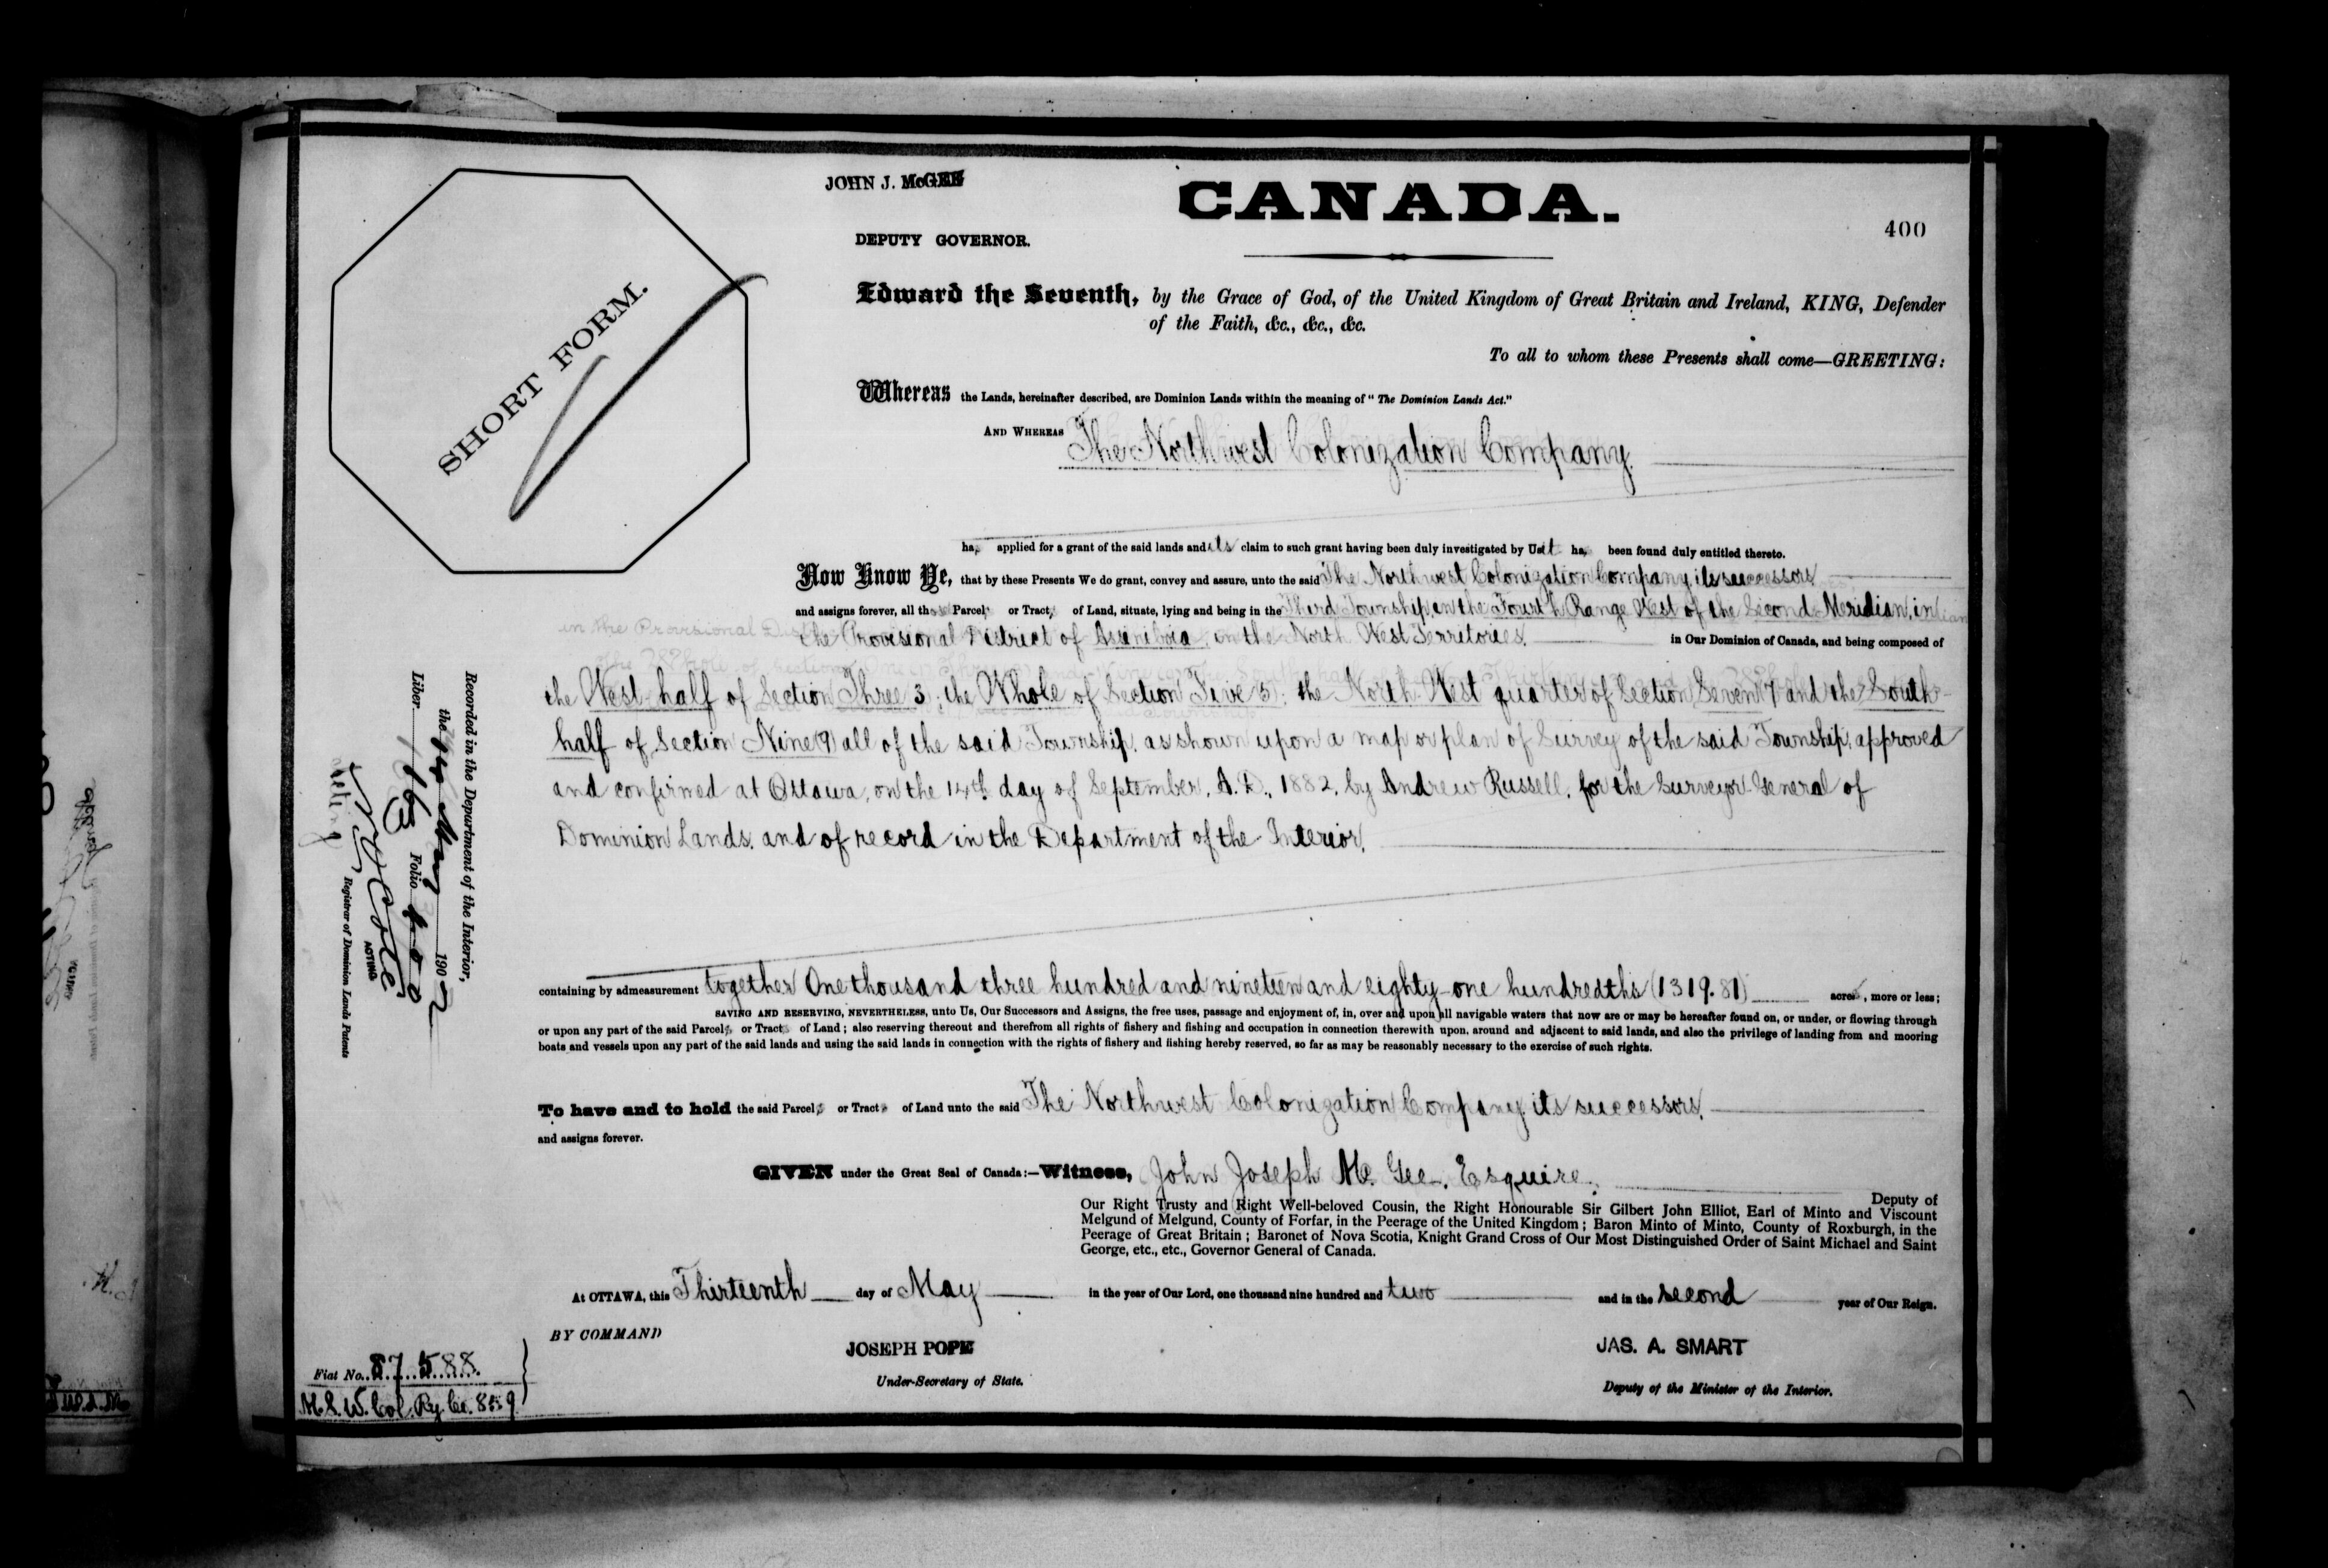 JOHN J. McGEE
CANADA.
400
DEPUTY GOVERNOR.
SHORT FORM.
Edward the Seventh, by the Grace of God, of the United Kingdom of Great Britain and Ireland, KING, Defender
of the Faith, &c., &c., &c.
To all to whom these Presents shall come—GREETING:
Whereas the Lands, hereinafter described, are Dominion Lands within the meaning of "The Dominion Lands Act."
AND WHEREAS The Northwest Colonization Company
has applied for a grant of the said lands and its claim to such grant having been duly investigated by Us it has been found duly entitled thereto.
Now Know Ye, that by these Presents We do grant, convey and assure, unto the said The Northwest Colonization Company, its successors
and assigns forever, all those Parcels or Tracts of Land, situate, lying and being in the Third Township, in the Fourth Range West of the Second Meridian, in
the Provisional District of Assiniboia, in the North West Territories in Our Dominion of Canada, and being composed of
the West half of Section Three 3, the Whole of Section Five 5; the North West quarter of Section Seven 7 and the South
half of Section Nine (9) all of the said Township, as shown upon a map or plan of Survey of the said Township, approved
and confirmed at Ottawa, on the 14th day of September, A.D., 1882, by Andrew Russell, for the Surveyor General of
Dominion Lands, and of record in the Department of the Interior,
containing by admeasurement together One thousand three hundred and nineteen and eighty-one hundredths (1319.81) acres, more or less;
SAVING AND RESERVING, NEVERTHELESS, unto Us, Our Successors and Assigns, the free uses, passage and enjoyment of, in, over and upon all navigable waters that now are or may be hereafter found on, or under, or flowing through
or upon any part of the said Parcels or Tracts of Land; also reserving thereout and therefrom all rights of fishery and fishing and occupation in connection therewith upon, around and adjacent to said lands, and also the privilege of landing from and mooring
boats and vessels upon any part of the said lands and using the said lands in connection with the rights of fishery and fishing hereby reserved, so far as may be reasonably necessary to the exercise of such rights.
To have and to hold the said Parcels or Tracts of Land unto the said The Northwest Colonization Company, its successors,
and assigns forever.
GIVEN under the Great Seal of Canada:—Witness, John Joseph McGee, Esquire,
Deputy of
Our Right Trusty and Right Well-beloved Cousin, the Right Honourable Sir Gilbert John Elliot, Earl of Minto and Viscount
Melgund of Melgund, County of Forfar, in the Peerage of the United Kingdom; Baron Minto of Minto, County of Roxburgh, in the
Peerage of Great Britain; Baronet of Nova Scotia, Knight Grand Cross of Our Most Distinguished Order of Saint Michael and Saint
George, etc., etc., Governor General of Canada.
At OTTAWA, this Thirteenth day of May in the year of Our Lord, one thousand nine hundred and two and in the second year of Our Reign.
BY COMMAND
JOSEPH POPE
Under-Secretary of State.
JAS. A. SMART
Deputy of the Minister of the Interior.
Recorded in the Department of the Interior,
the May 1902
Liber 163 Folio 400
N. O. Coté
ACTING
Registrar of Dominion Lands Patents
Fiat No. 87588.
M.S.W. Col. Ry. Co. 859